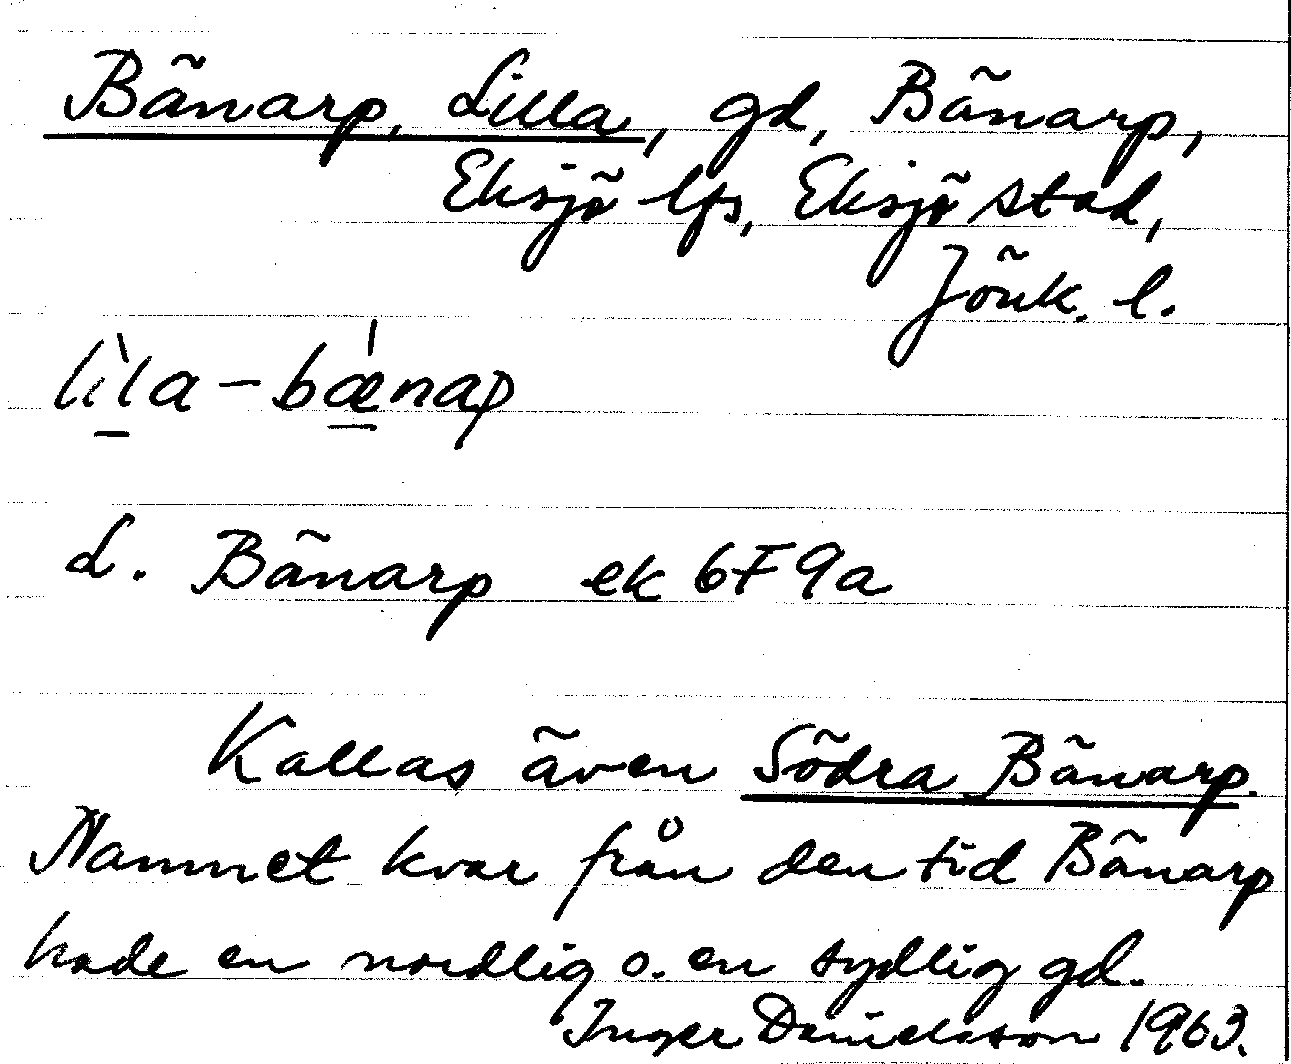 Bänarp, Lilla, gd, Bänarp,
Eksjö lfs, Eksjö stad,
Jönk. l.
lìla-bǽnap
L. Bänarp ek 6F9a
Kallas även Södra Bänarp.
Namnet kvar från den tid Bänarp
hade en nordlig o. en sydlig gd.
Inger Danielsson 1963.